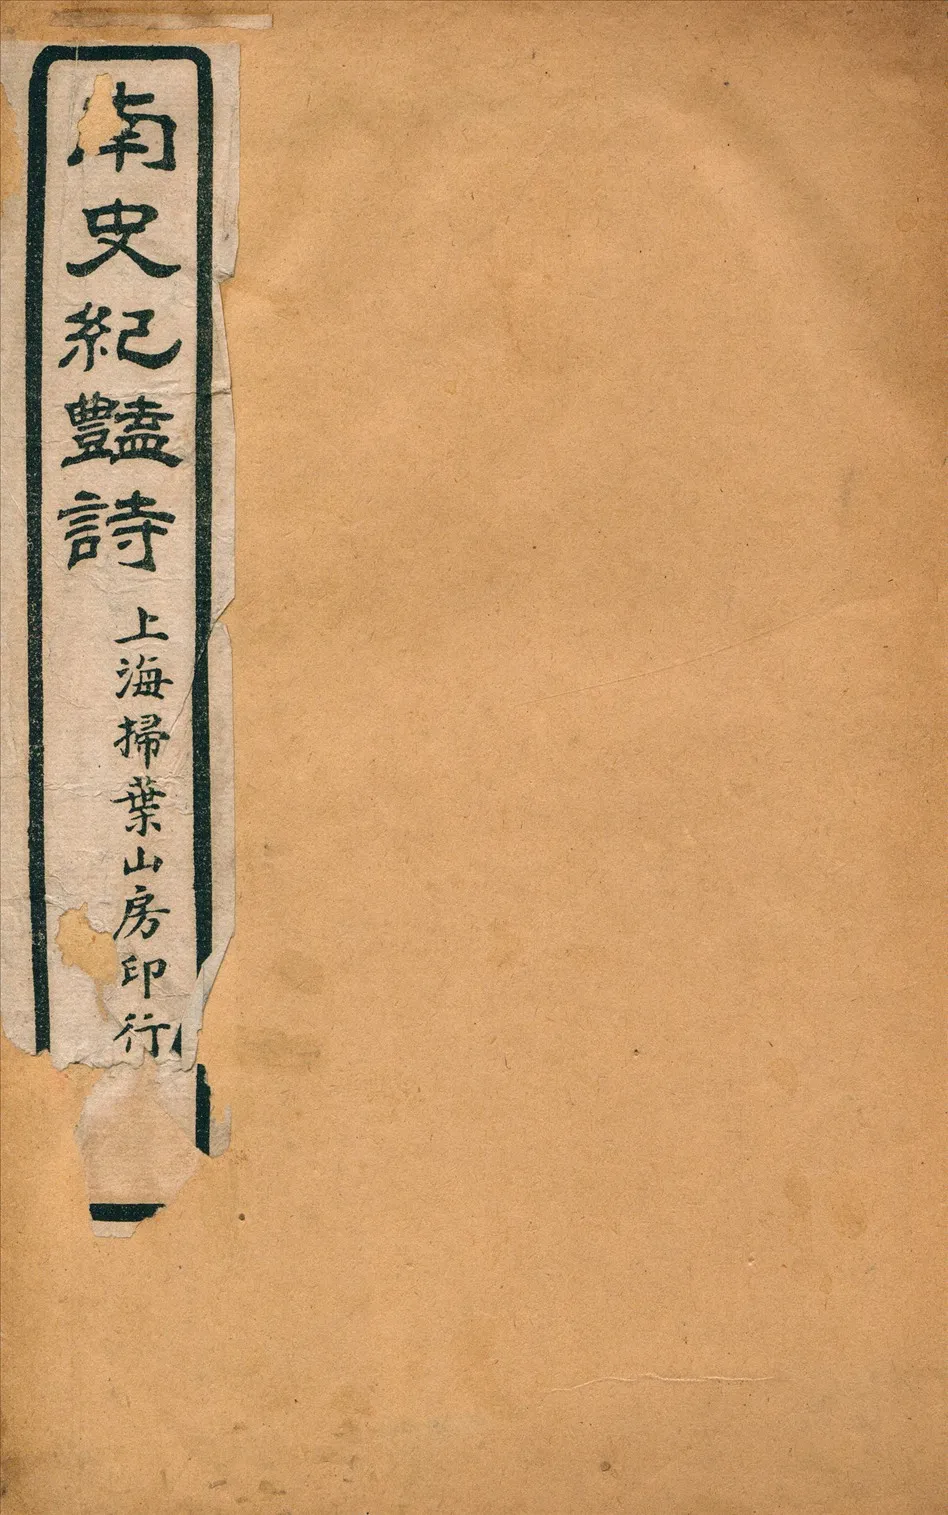 南史紀豔詩
上海掃葉山房印行